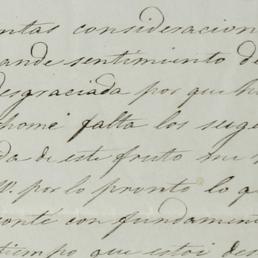 ntas consideracion
ande sentimiento de
desgraciada por que h
home falta los suge
da de este fruto mi
V. por lo pronto lo q
onté con fundamen
tiempo que estoi des